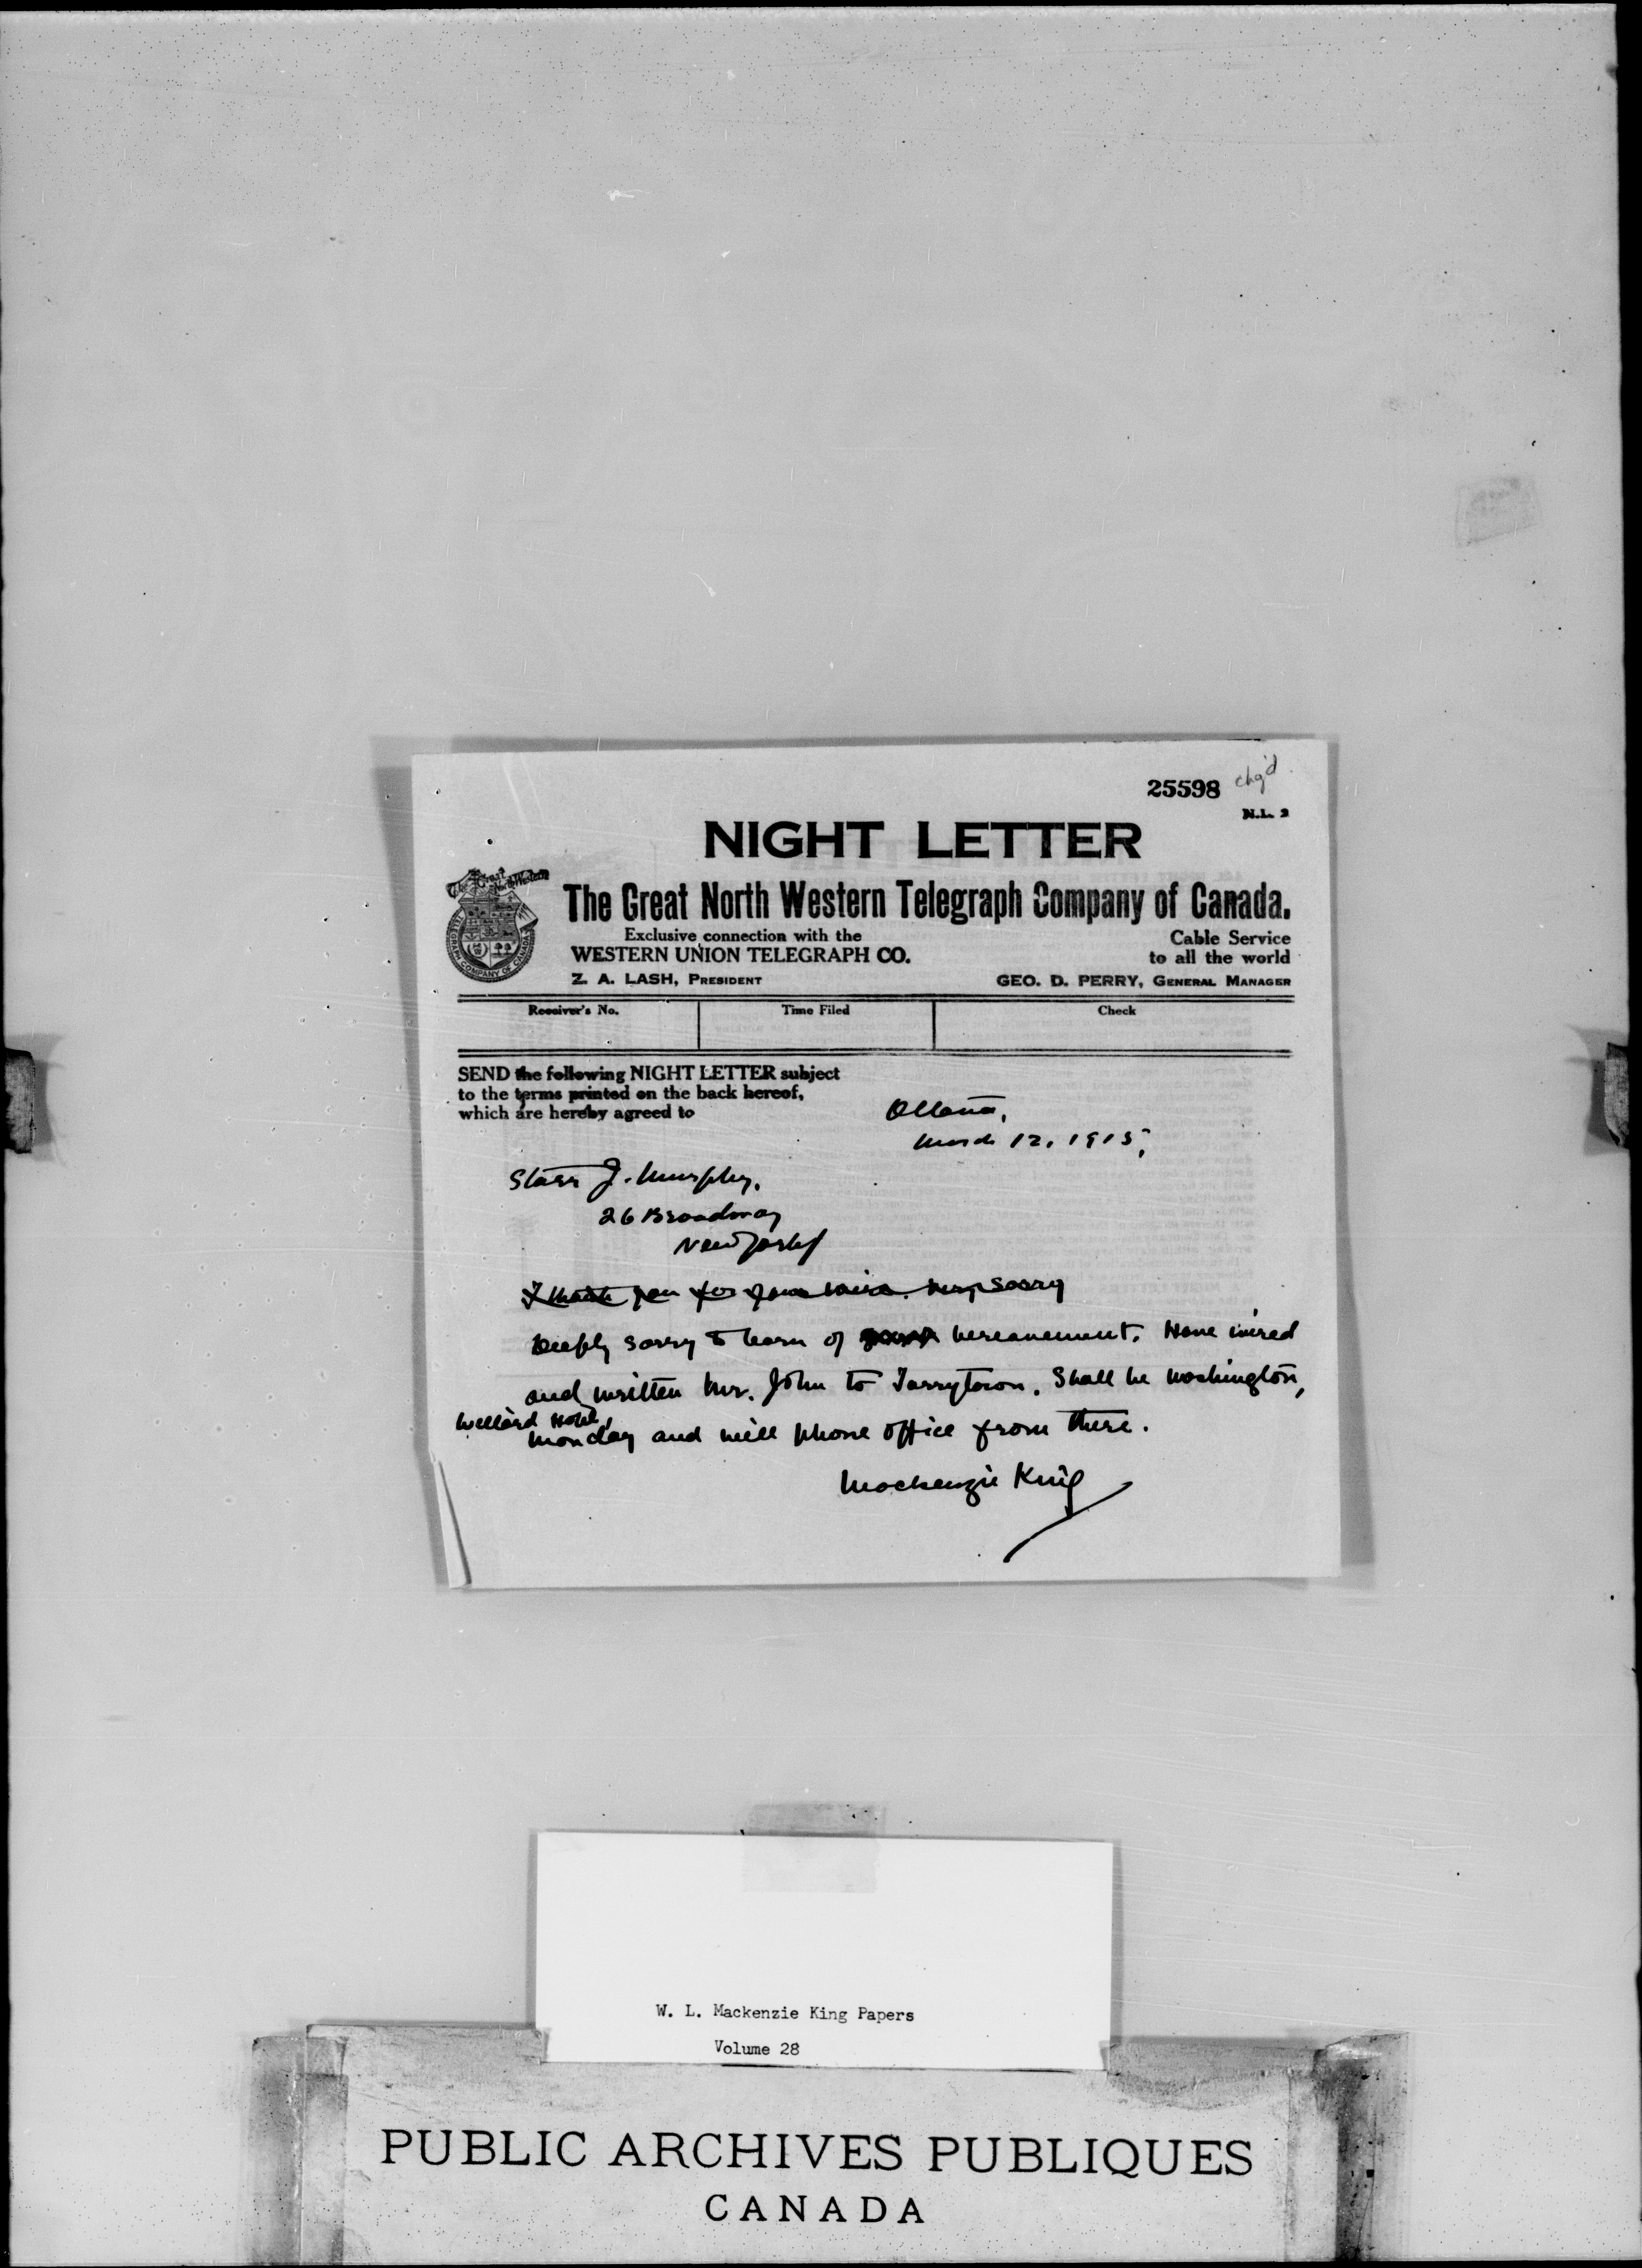 25598 chg'd
N.L. 2
NIGHT LETTER
The Great North Western
TELEGRAPH COMPANY OF CANADA
The Great North Western Telegraph Company of Canada.
Exclusive connection with the
WESTERN UNION TELEGRAPH CO.
Cable Service
to all the world
Z. A. LASH, PRESIDENT
GEO. D. PERRY, GENERAL MANAGER
Receiver's No. Time Filed Check
SEND the following NIGHT LETTER subject
to the terms printed on the back hereof,
which are hereby agreed to
Ottawa,
March 12, 1915.
Starr J. Murphy.
26 Broadway
New York
I thank you for your wire. Very sorry
Deeply sorry to learn of bereavement. Have wired
and written Mr. John to Tarrytown. Shall be Washington,
Willard Hotel,
Monday and will phone office from there.
Mackenzie King
W. L. Mackenzie King Papers
Volume 28
PUBLIC ARCHIVES PUBLIQUES
CANADA